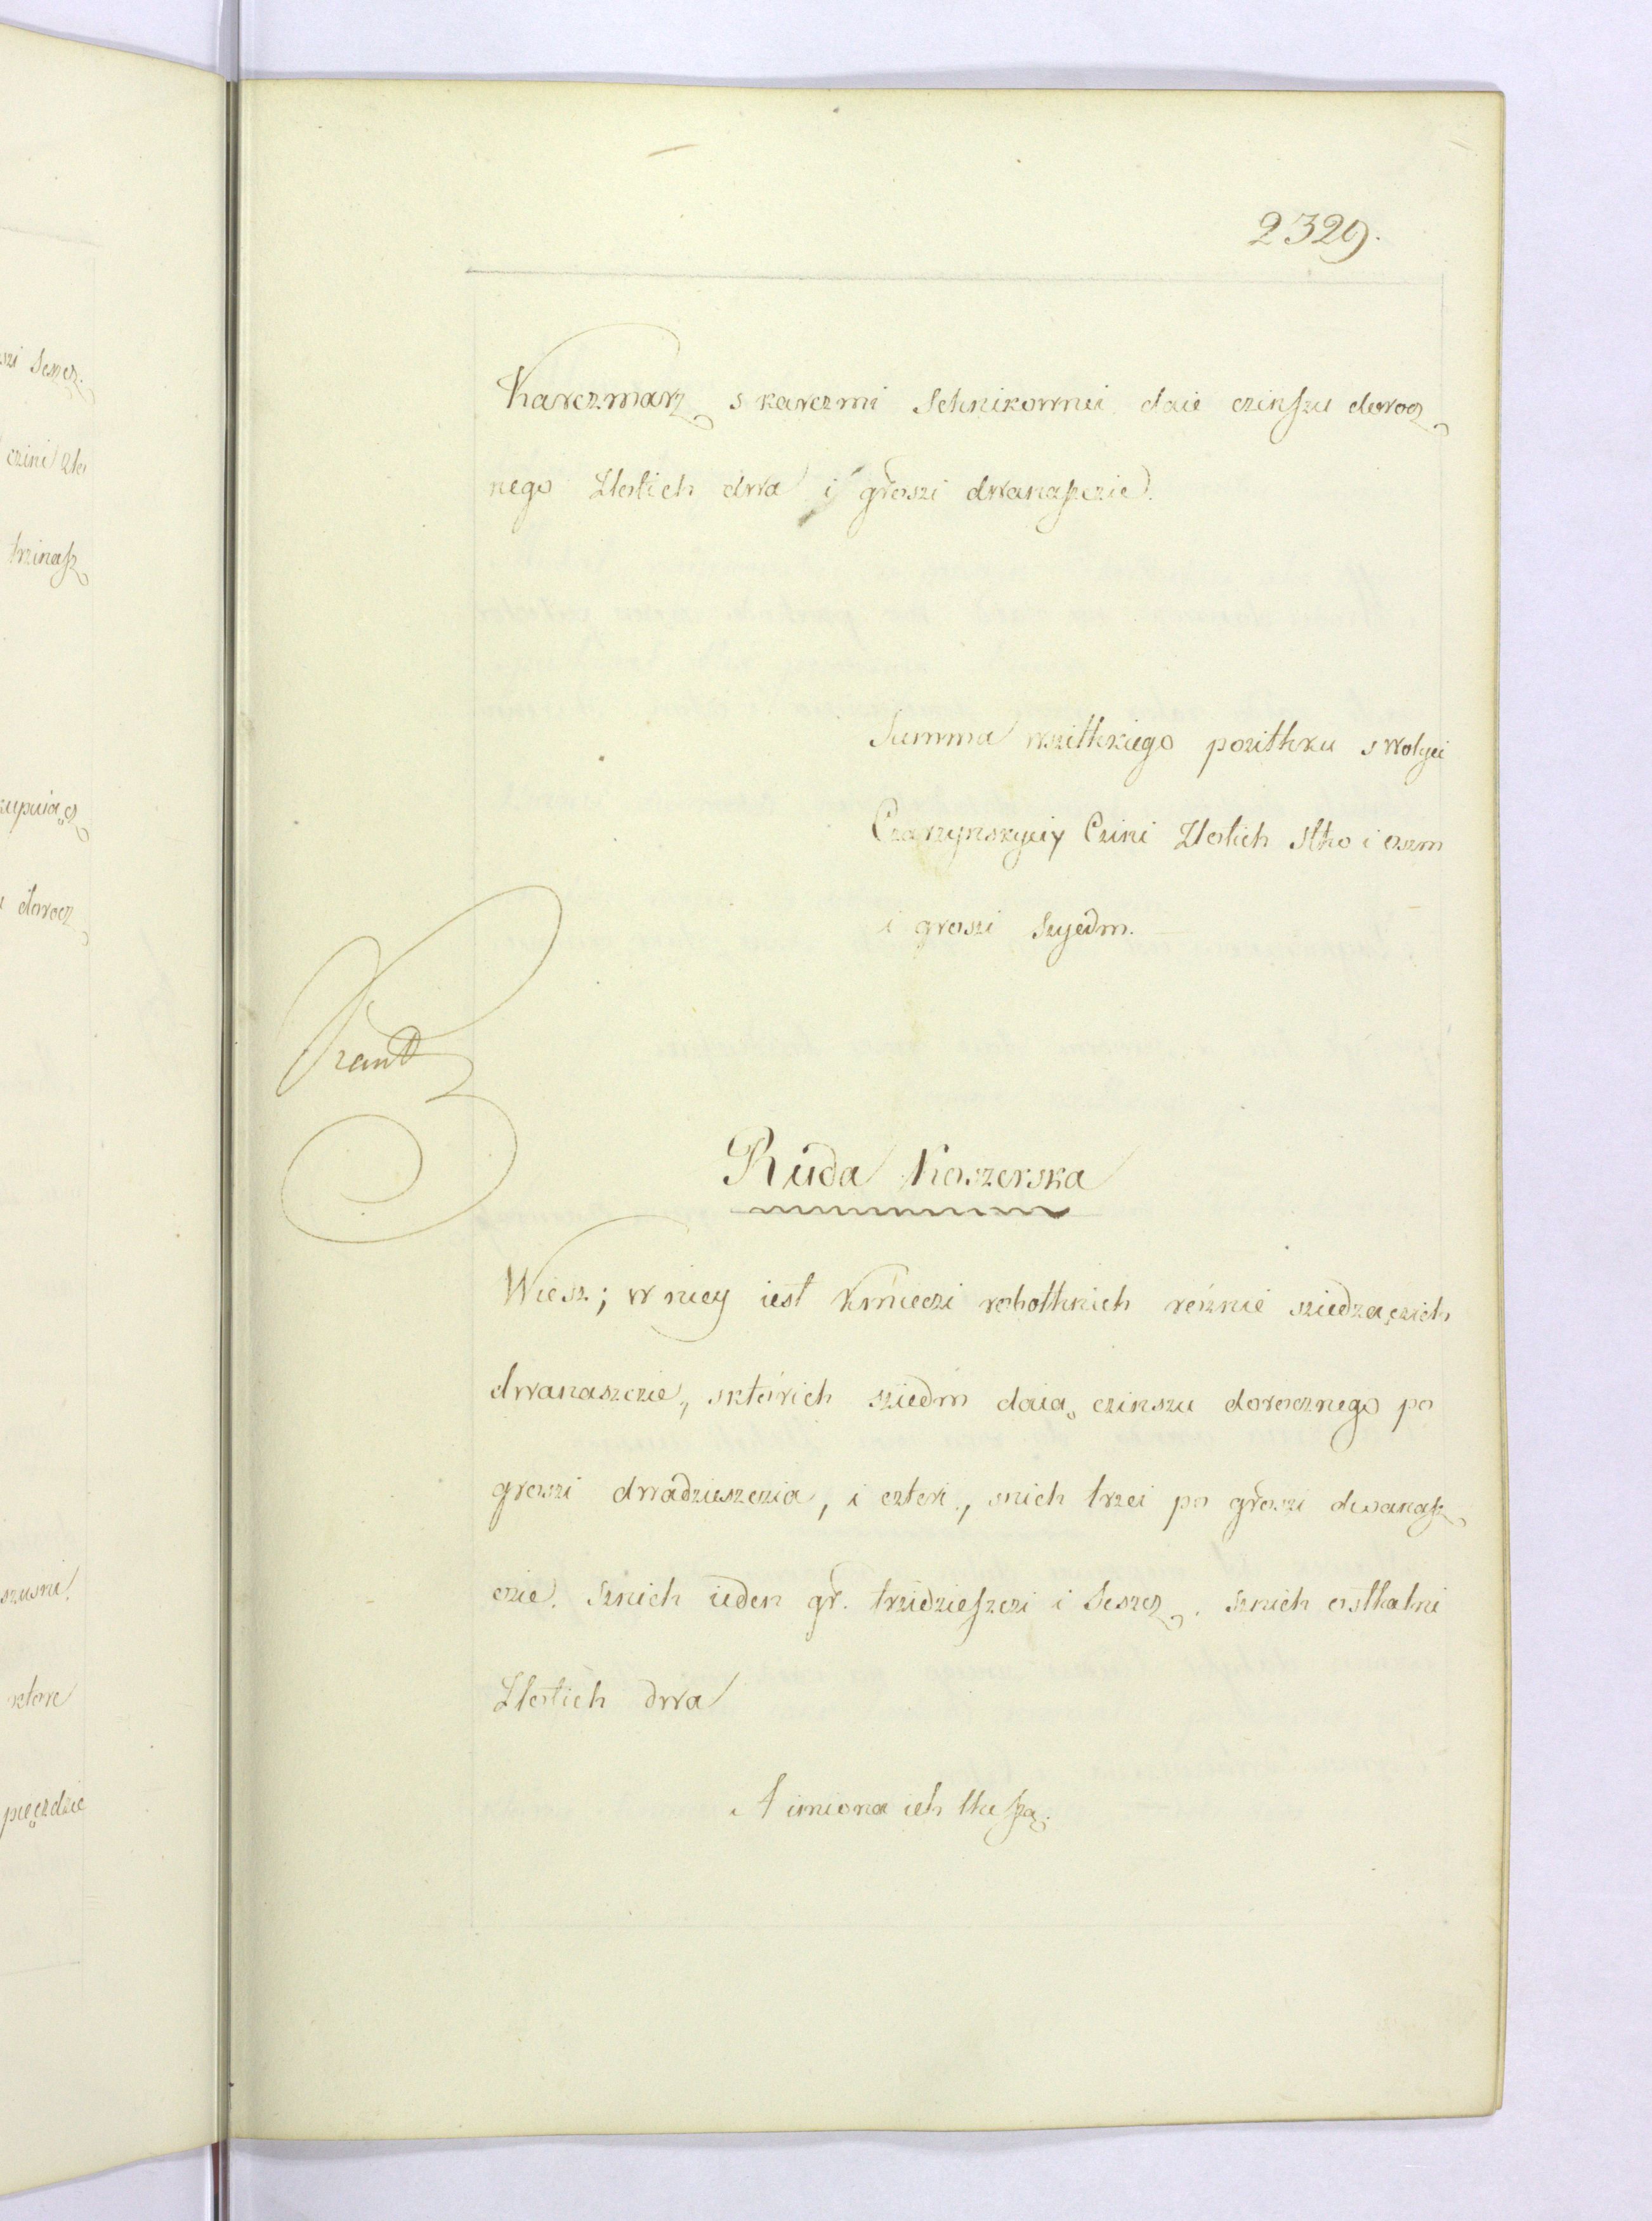 2329.
Karczmarz s karczmi Sehnikownei daie czinszu dorocz
nego Złotich dwa i groszi dwanaszczie.
Summa wszitkiego pozithku s wolyei
Czarzynskyeiy Czini Złotich Stho i oszm
i groszi Szyedm.
Ruda Koszerska
Wiesz; w niey iest kmieczi robothnich reżnie sziedzączich
dwanaszczie, sktórich sziedm daią czinszu dorocznego po
groszi dwadzieszczia, i czteri, snich trzei po groszi dwanasz
czie. Sznich ieden gr. trzidzieszczi i Seszcz. Sznich osthatni
Złotich dwa
A imiona ich thu szą.
szi Seszcz.
czini Zło
trzinasz
kupuiącz
dorocz
szusni.
ktore
pięczdzie